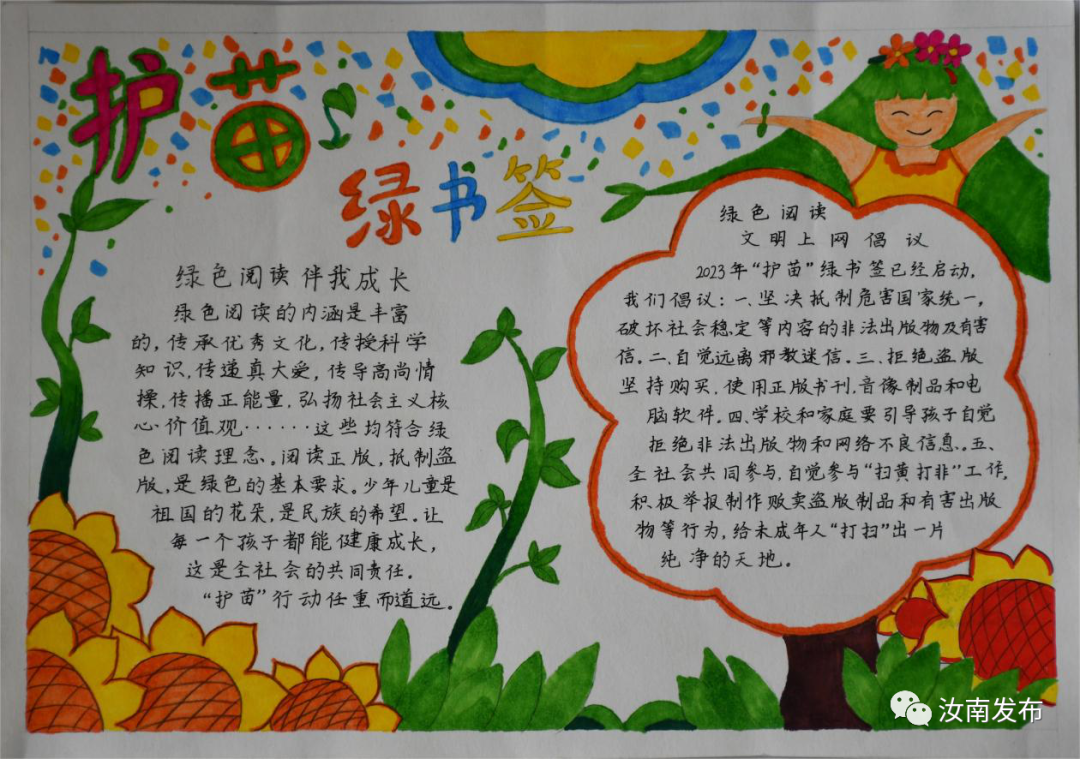 护苗
绿书签
绿色阅读 伴我成长
绿色阅读的内涵是丰富
的,传承优秀文化,传授科学
知识,传递真大爱,传导高尚情
操,传播正能量,弘扬社会主义核
心价值观······这些均符合绿
色阅读理念。阅读正版,抵制盗
版,是绿色的基本要求。少年儿童是
祖国的花朵,是民族的希望。让
每一个孩子都能健康成长,
这是全社会的共同责任。
“护苗”行动任重而道远。
绿色阅读
文明上网倡议
2023年“护苗”绿书签已经启动,
我们倡议:一、坚决抵制危害国家统一,
破坏社会稳定等内容的非法出版物及有害
信。二、自觉远离邪教迷信。三、拒绝盗版
坚持购买,使用正版书刊,音像制品和电
脑软件。四、学校和家庭要引导孩子自觉
拒绝非法出版物和网络不良信息。五、
全社会共同参与,自觉参与“扫黄打非”工作,
积极举报制作贩卖盗版制品和有害出版
物等行为,给未成年人“打扫”出一片
纯净的天地。
汝南发布